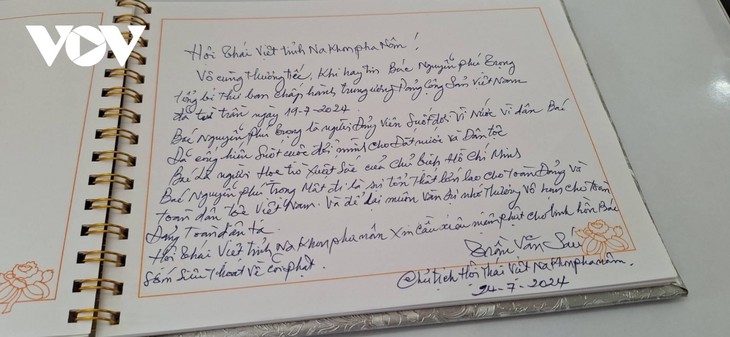 VOV
Hội Thái Việt tỉnh Na Khon pha Nôm!
Vô cùng thương tiếc, Khi hay tin Bác Nguyễn Phú Trọng
tổng bí thư ban chấp hành trung ương Đảng Cộng Sản Việt Nam
đã từ trần ngày 19-7-2024
Bác Nguyễn Phú Trọng là người Đảng Viên Suốt đời Vì Nước Vì dân Bác
Đã cống hiến Suốt cuộc đời mình cho Đất nước và Dân tộc
Bác là người Học trò Xuất Sắc của Chủ tịch Hồ Chí Minh
Bác Nguyễn phú Trọng Mất đi là sự tổn thất lớn lao cho toàn Đảng và
toàn dân tộc Việt Nam. Và để lại muôn vàn sự nhớ thương Vô hạn cho toàn
Đảng toàn dân ta.
Hội Thái Việt tỉnh Na Khon pha nôm Xin cầu nguyện phật cho linh hồn Bác
Sớm Siêu thoát về cõi phật.
Trần Văn Sáu
Chủ tịch Hội Thái Việt Na Khon pha nôm.
24-7-2024